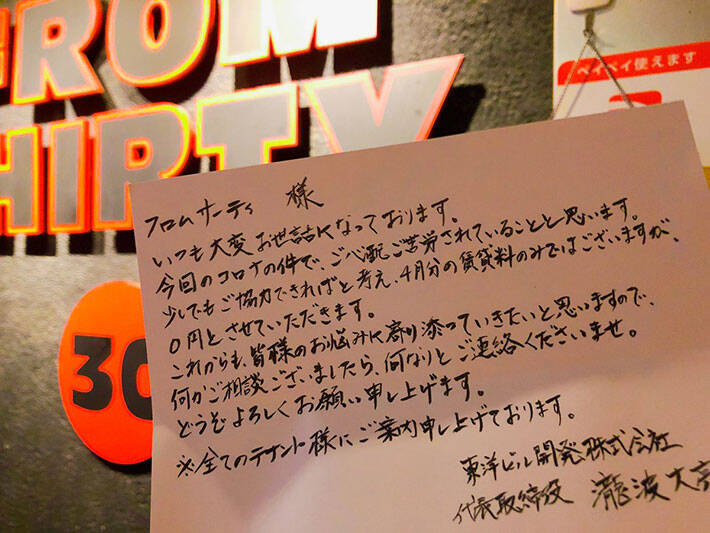 FROM
THIRTY
30
ペイペイ使えます
フロムサーティ 様
いつも大変お世話になっております。
今回のコロナの件で、ご心配ご苦労されていることと思います。
少しでもご協力できればと考え、4月分の賃貸料のみではございますが、
0円とさせていただきます。
これからも、皆様のお悩みに寄り添っていきたいと思いますので、
何かご相談ございましたら、何なりとご連絡くださいませ。
どうぞよろしくお願い申し上げます。
※全てのテナント様にご案内申し上げております。
東洋ビル開発株式会社
代表取締役 瀧波大亮